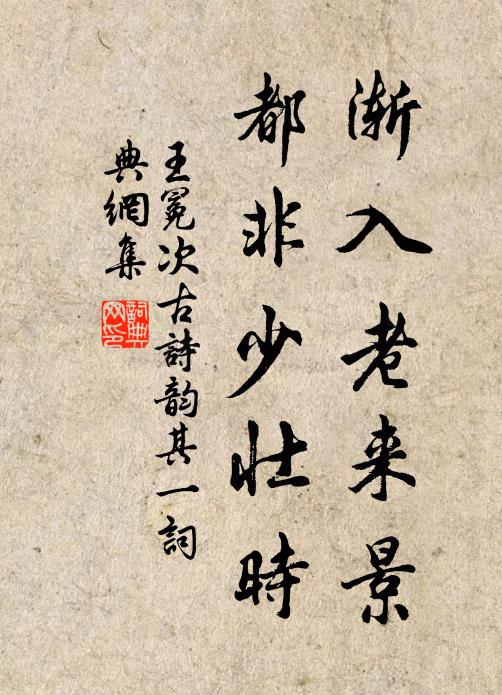 漸入老来景
都非少壯時
王冕次古詩韵其一詞
典網集
詞典
网印